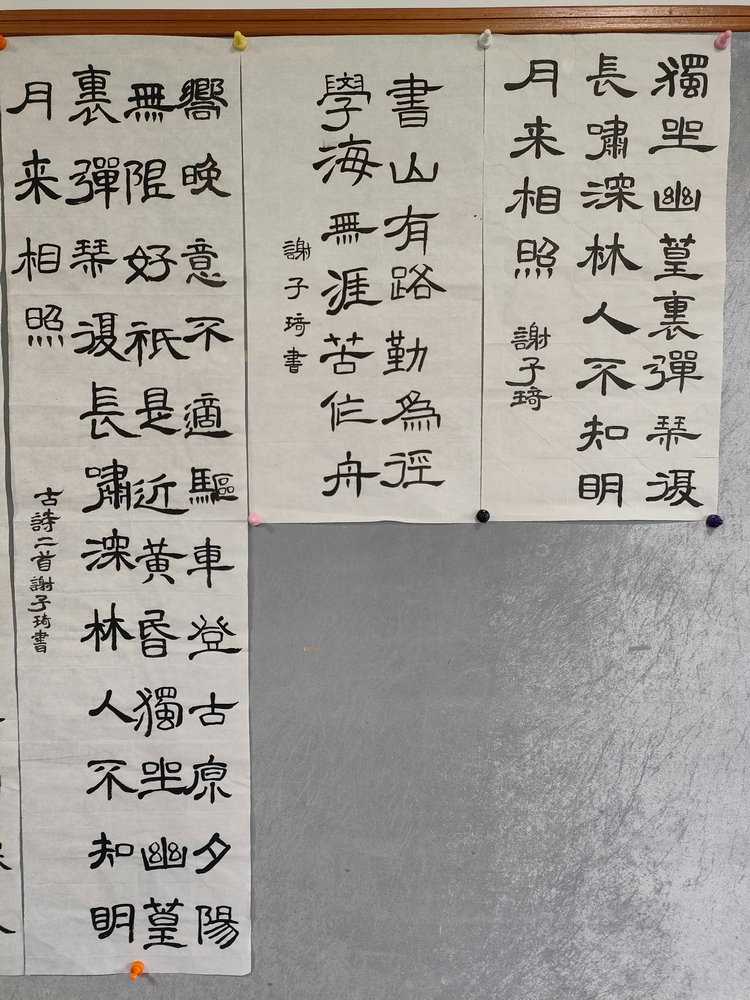 獨坐幽篁裏彈琴復
長嘯深林人不知明
月来相照
謝子琦
書山有路勤為徑
學海無涯苦作舟
謝子琦書
嚮晚意不適驅車登古原夕陽
無限好祇是近黄昏獨坐幽篁
裏彈琴復長嘯深林人不知明
月来相照
古詩二首謝子琦書